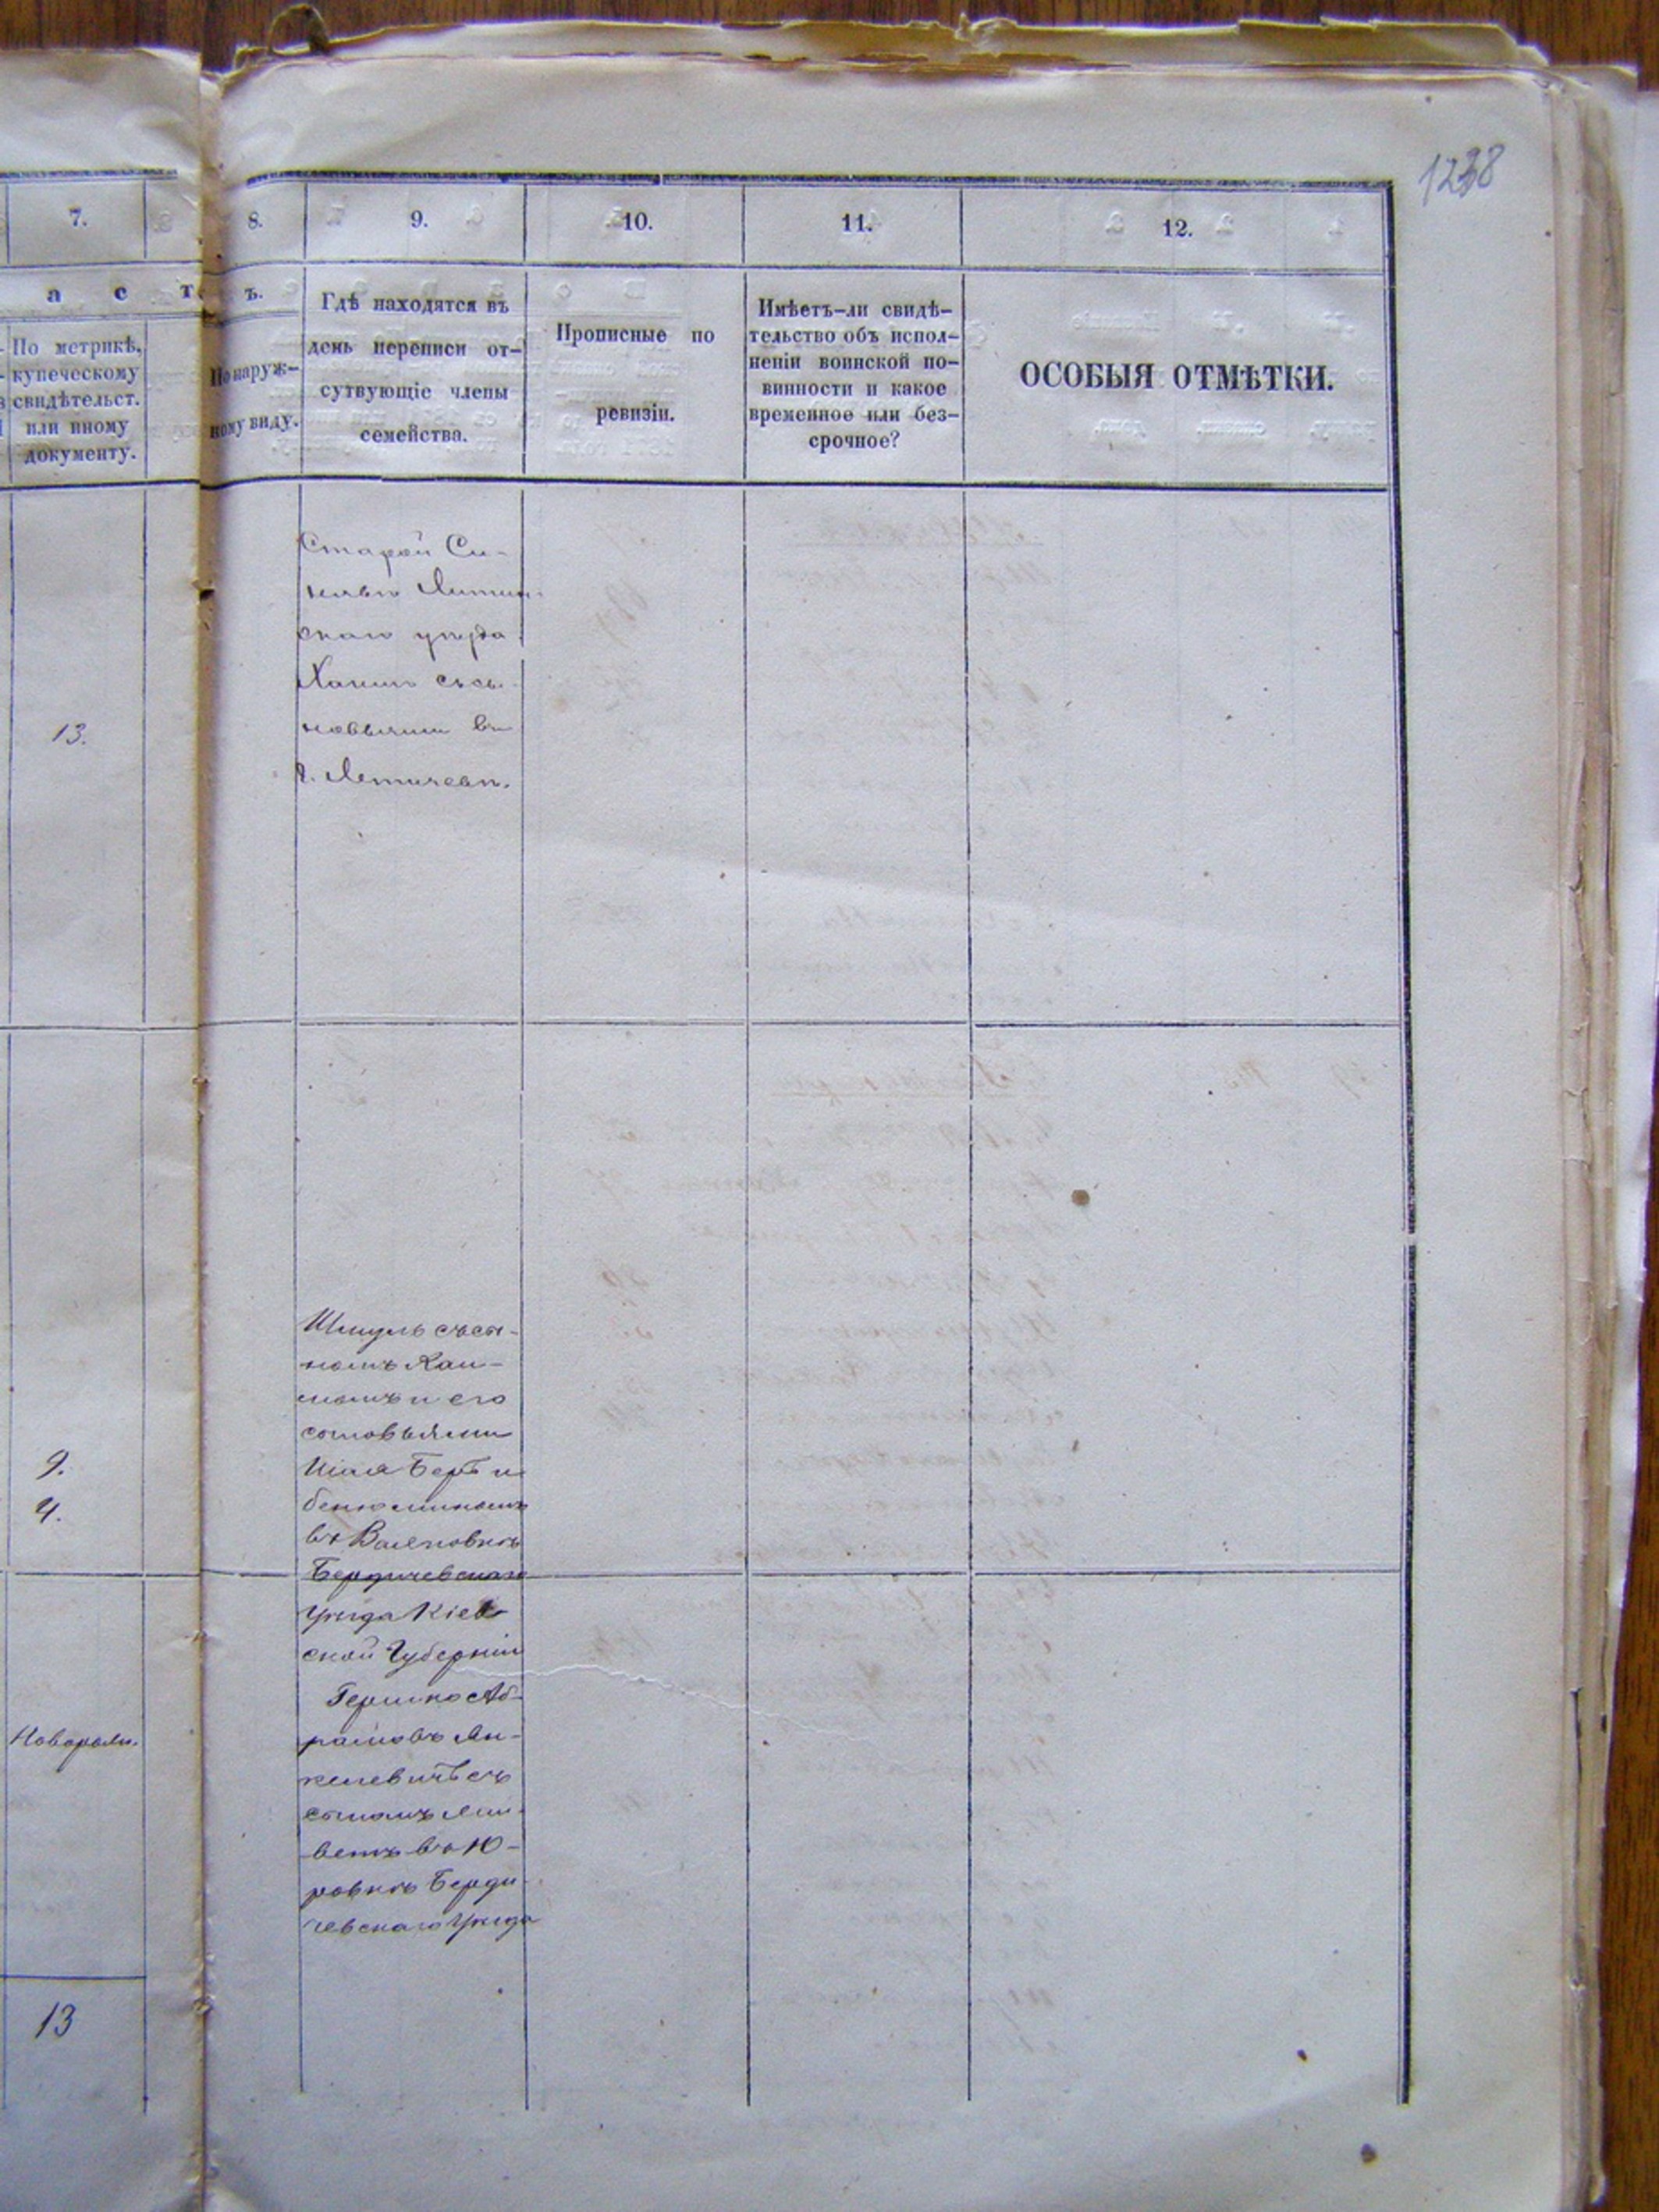 1238
7.
8.
9.
10.
11.
12.
а с т
ъ.
По метрикѣ,
купеческому
свидѣтельст.
или иному
документу.
По наруж-
ному виду.
Гдѣ находятся въ
день переписи от-
сутвующіе члены
семейства.
Прописные по
ревизіи.
Имѣетъ-ли свидѣ-
тельство объ испол-
неніи воинской по-
винности и какое
временное или без-
срочное?
ОСОБЫЯ ОТМѢТКИ.
13.
Старой Си-
нявѣ Летич-
скаго уѣзда
Хаимъ съ сы-
новьями въ
г. Летичевѣ.
9.
4.
Шмуль съ сы-
номъ
и его
сыновьями
Беръ и
бенюминомъ
въ
Бердичевскаго
уѣзда Кіев-
ской Губерніи
Гершко Аб-
рамовъ Ян-
келевичъ съ
сыномъ жи-
ветъ въ Ю-
ровкѣ Берди-
чевскаго уѣзда
Коворожд.
13